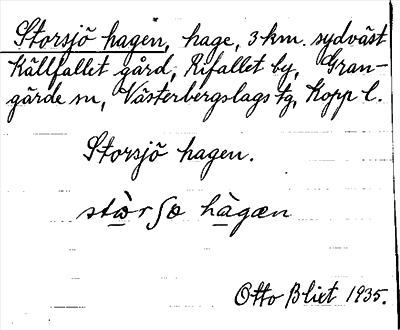 Storsjö hagen, hage, 3 km. sydväst
Källfallet gård, Rifallet by, Gran-
gärde sn, Västerbergslags tg, Kopp l.
Storsjö hagen.
stò̱rʃœ hà̱gæn
Otto Blixt 1935.